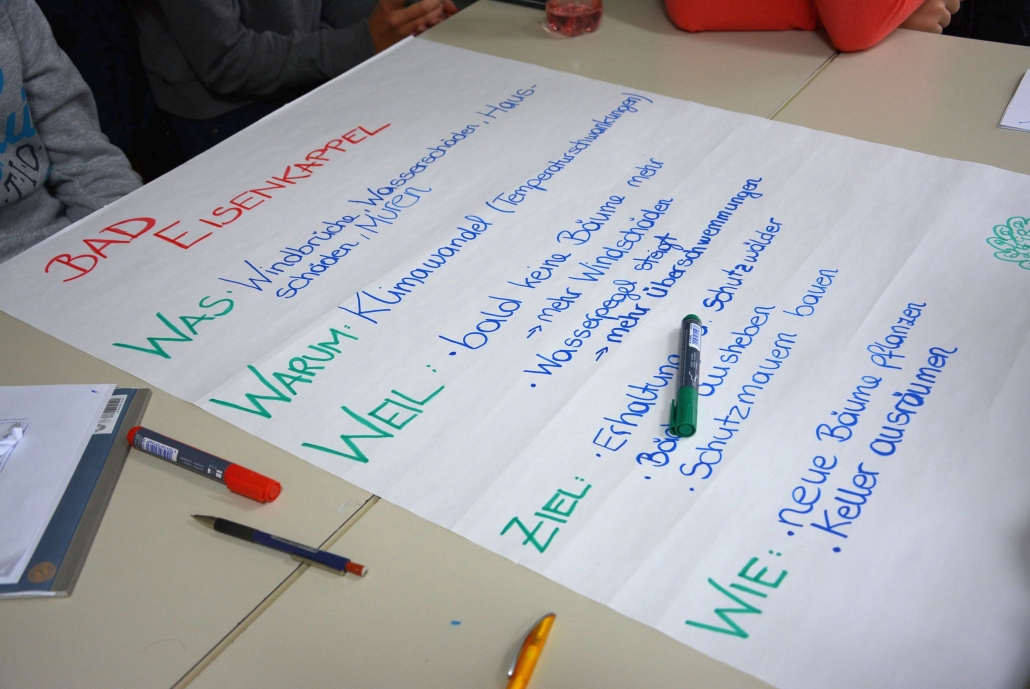 BAD
EISENKAPPEL
WAS: Windbrüche, Wasserschäden, Haus-
schäden, Muren
WARUM: Klimawandel (Temperaturschwankungen)
WEIL: • bald keine Bäume mehr
→ mehr Windschäden
• Wasserpegel steigt
→ mehr Überschwemmungen
ZIEL: • Erhaltung Schutzwälder
• ausheben
• Schutzmauern bauen
WIE: • neue Bäume pflanzen
• Keller ausräumen